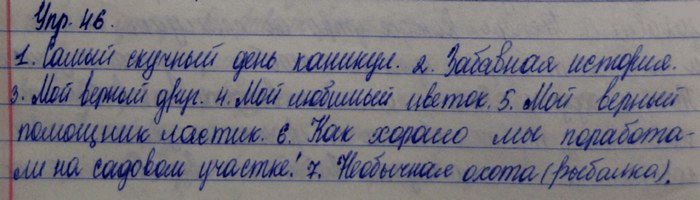 Упр. 46.
1. Самый скучный день каникул. 2. Забавная история.
3. Мой верный друг. 4. Мой любимый цветок. 5. Мой верный
помощник ластик. 6. Как хорошо мы поработа-
ли на садовом участке! 7. Необычная охота (рыбалка).